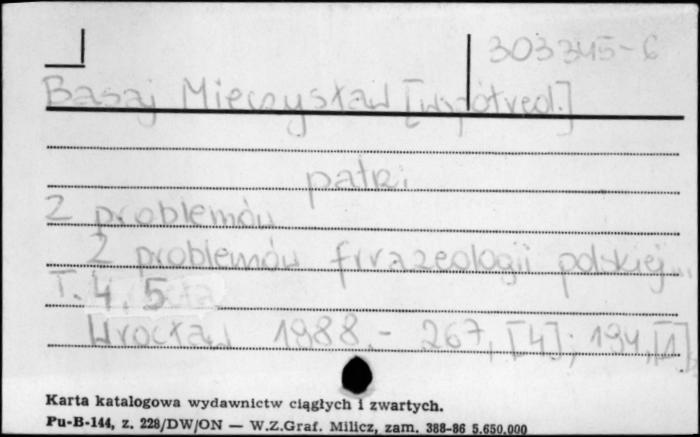 303345-6
Basaj Mieczysław [współred.]
patrz
Z problemów
Z problemów frazeologii polskiej...
T. 4, 5
Wrocław 1988.- 267, [4]; 194, [1]
Karta katalogowa wydawnictw ciągłych i zwartych.
Pu-B-144, z. 228/DW/ON — W.Z.Graf. Milicz, zam. 388-86 5.650.000